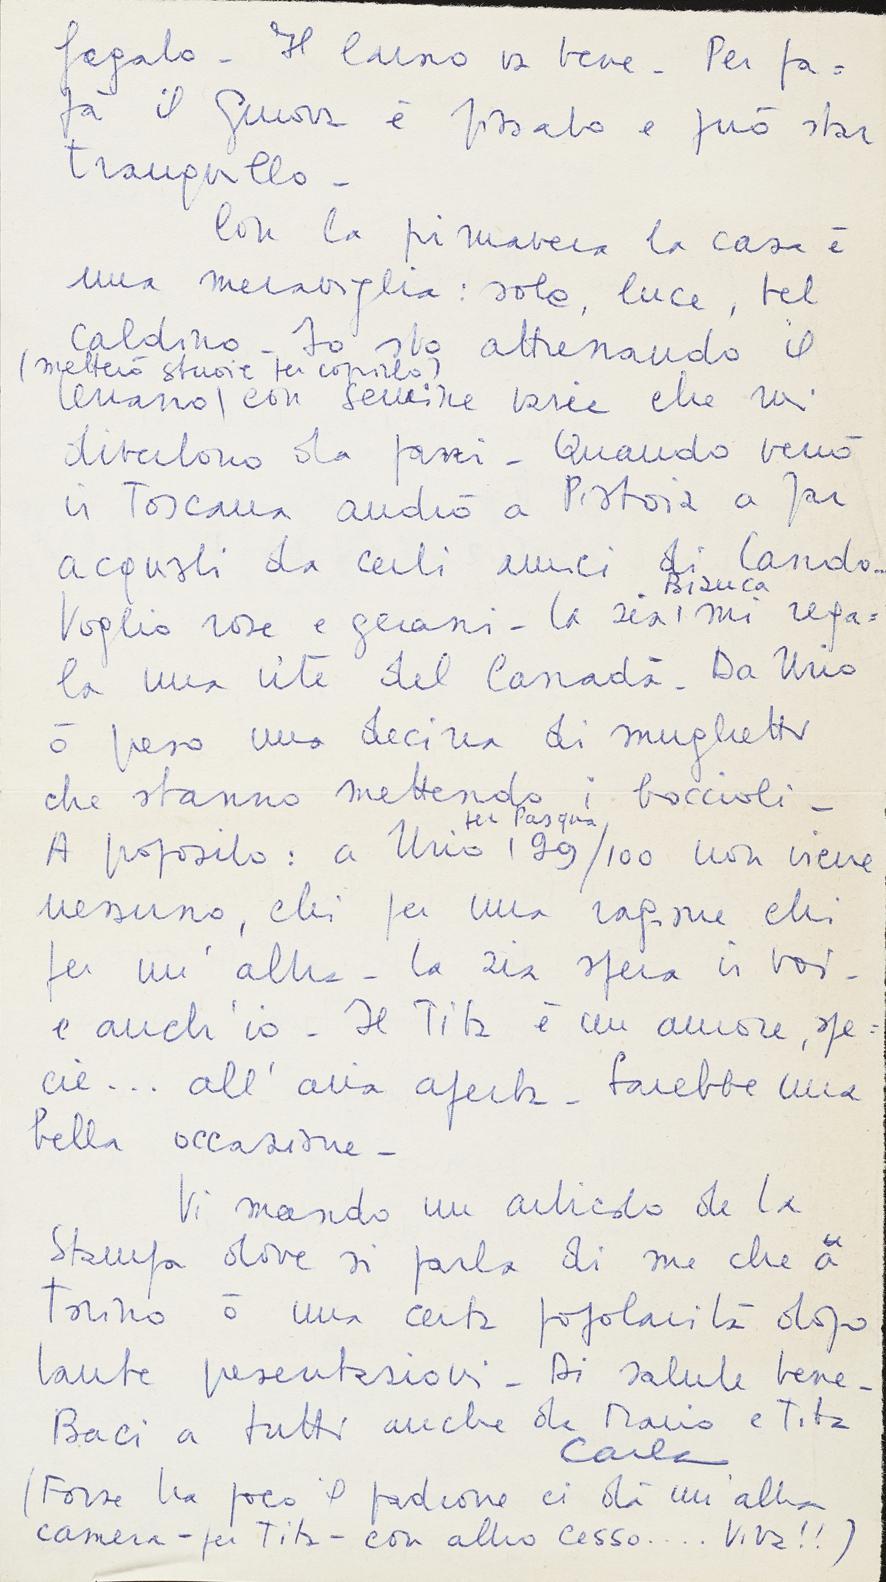 fegato - Il corso va bene - Per pa=
pà il Genova è fissato e può star
tranquillo -
Con la primavera la casa è
una meraviglia: sole, luce, bel
caldino - Io sto attrezzando il
(metterò stuoie per coprirlo)
terrazzo con semine varie che mi
divertono da pazzi - Quando verrò
in Toscana andrò a Pistoia a far
acquisti da certi amici di Cando..
Bianca
Voglio rose e gerani - la zia mi rega=
la una vite del Canadà - Da Urio
ò preso una decina di mughetti
che stanno mettendo i boccioli -
per Pasqua
A proposito: a Urio 99/100 non viene
nessuno, chi per una ragione chi
per un'altra - la zia spera in voi -
e anch'io - Il Tita è un amore, spe=
cie... all'aria aperta - Sarebbe una
bella occasione -
Vi mando un articolo de la
Stampa dove si parla di me che a
Torino ò una certa popolarità dopo
tante presentazioni - Di salute bene -
Baci a tutti anche da Mario e Tita
Carla
(Forse tra poco il padrone ci dà un'altra
camera - per Tita - con altro cesso.... Viva!!)